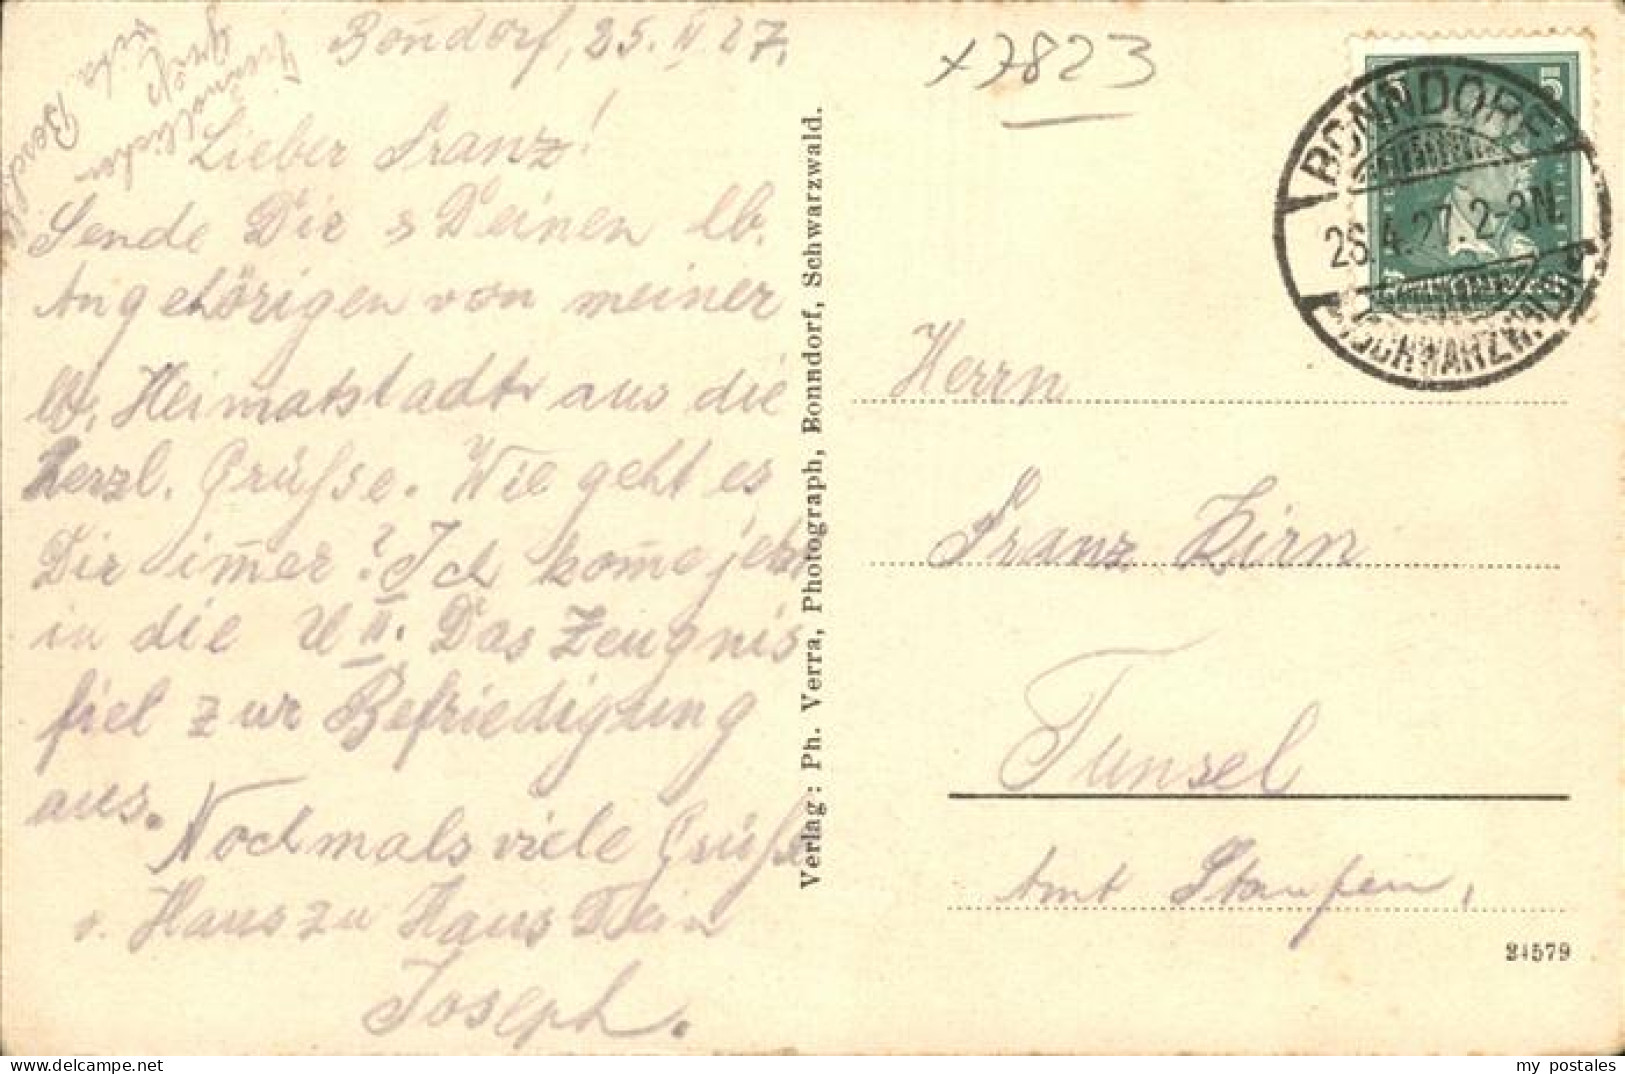 Bondorf, 25. II 27.
Lieber Franz!
Sende Dir & Deinen lb.
Angehörigen von meiner
lb. Heimatstadt aus die
herzl. Grüsse. Wie geht es
Dir immer? Ich kome jetzt
in die U II. Das Zeugnis
fiel zur Befriedigung
aus.
Nochmals viele Grüße
v. Haus zu Haus Dein
Joseph.
x7823
BONNDORF
26.4.27. 2-3N.
(SCHWARZWALD)
5
Verlag: Ph. Verra, Photograph, Bonndorf, Schwarzwald.
Herrn
Franz Zirn
Tunsel
Amt Staufen,
24579
my postales